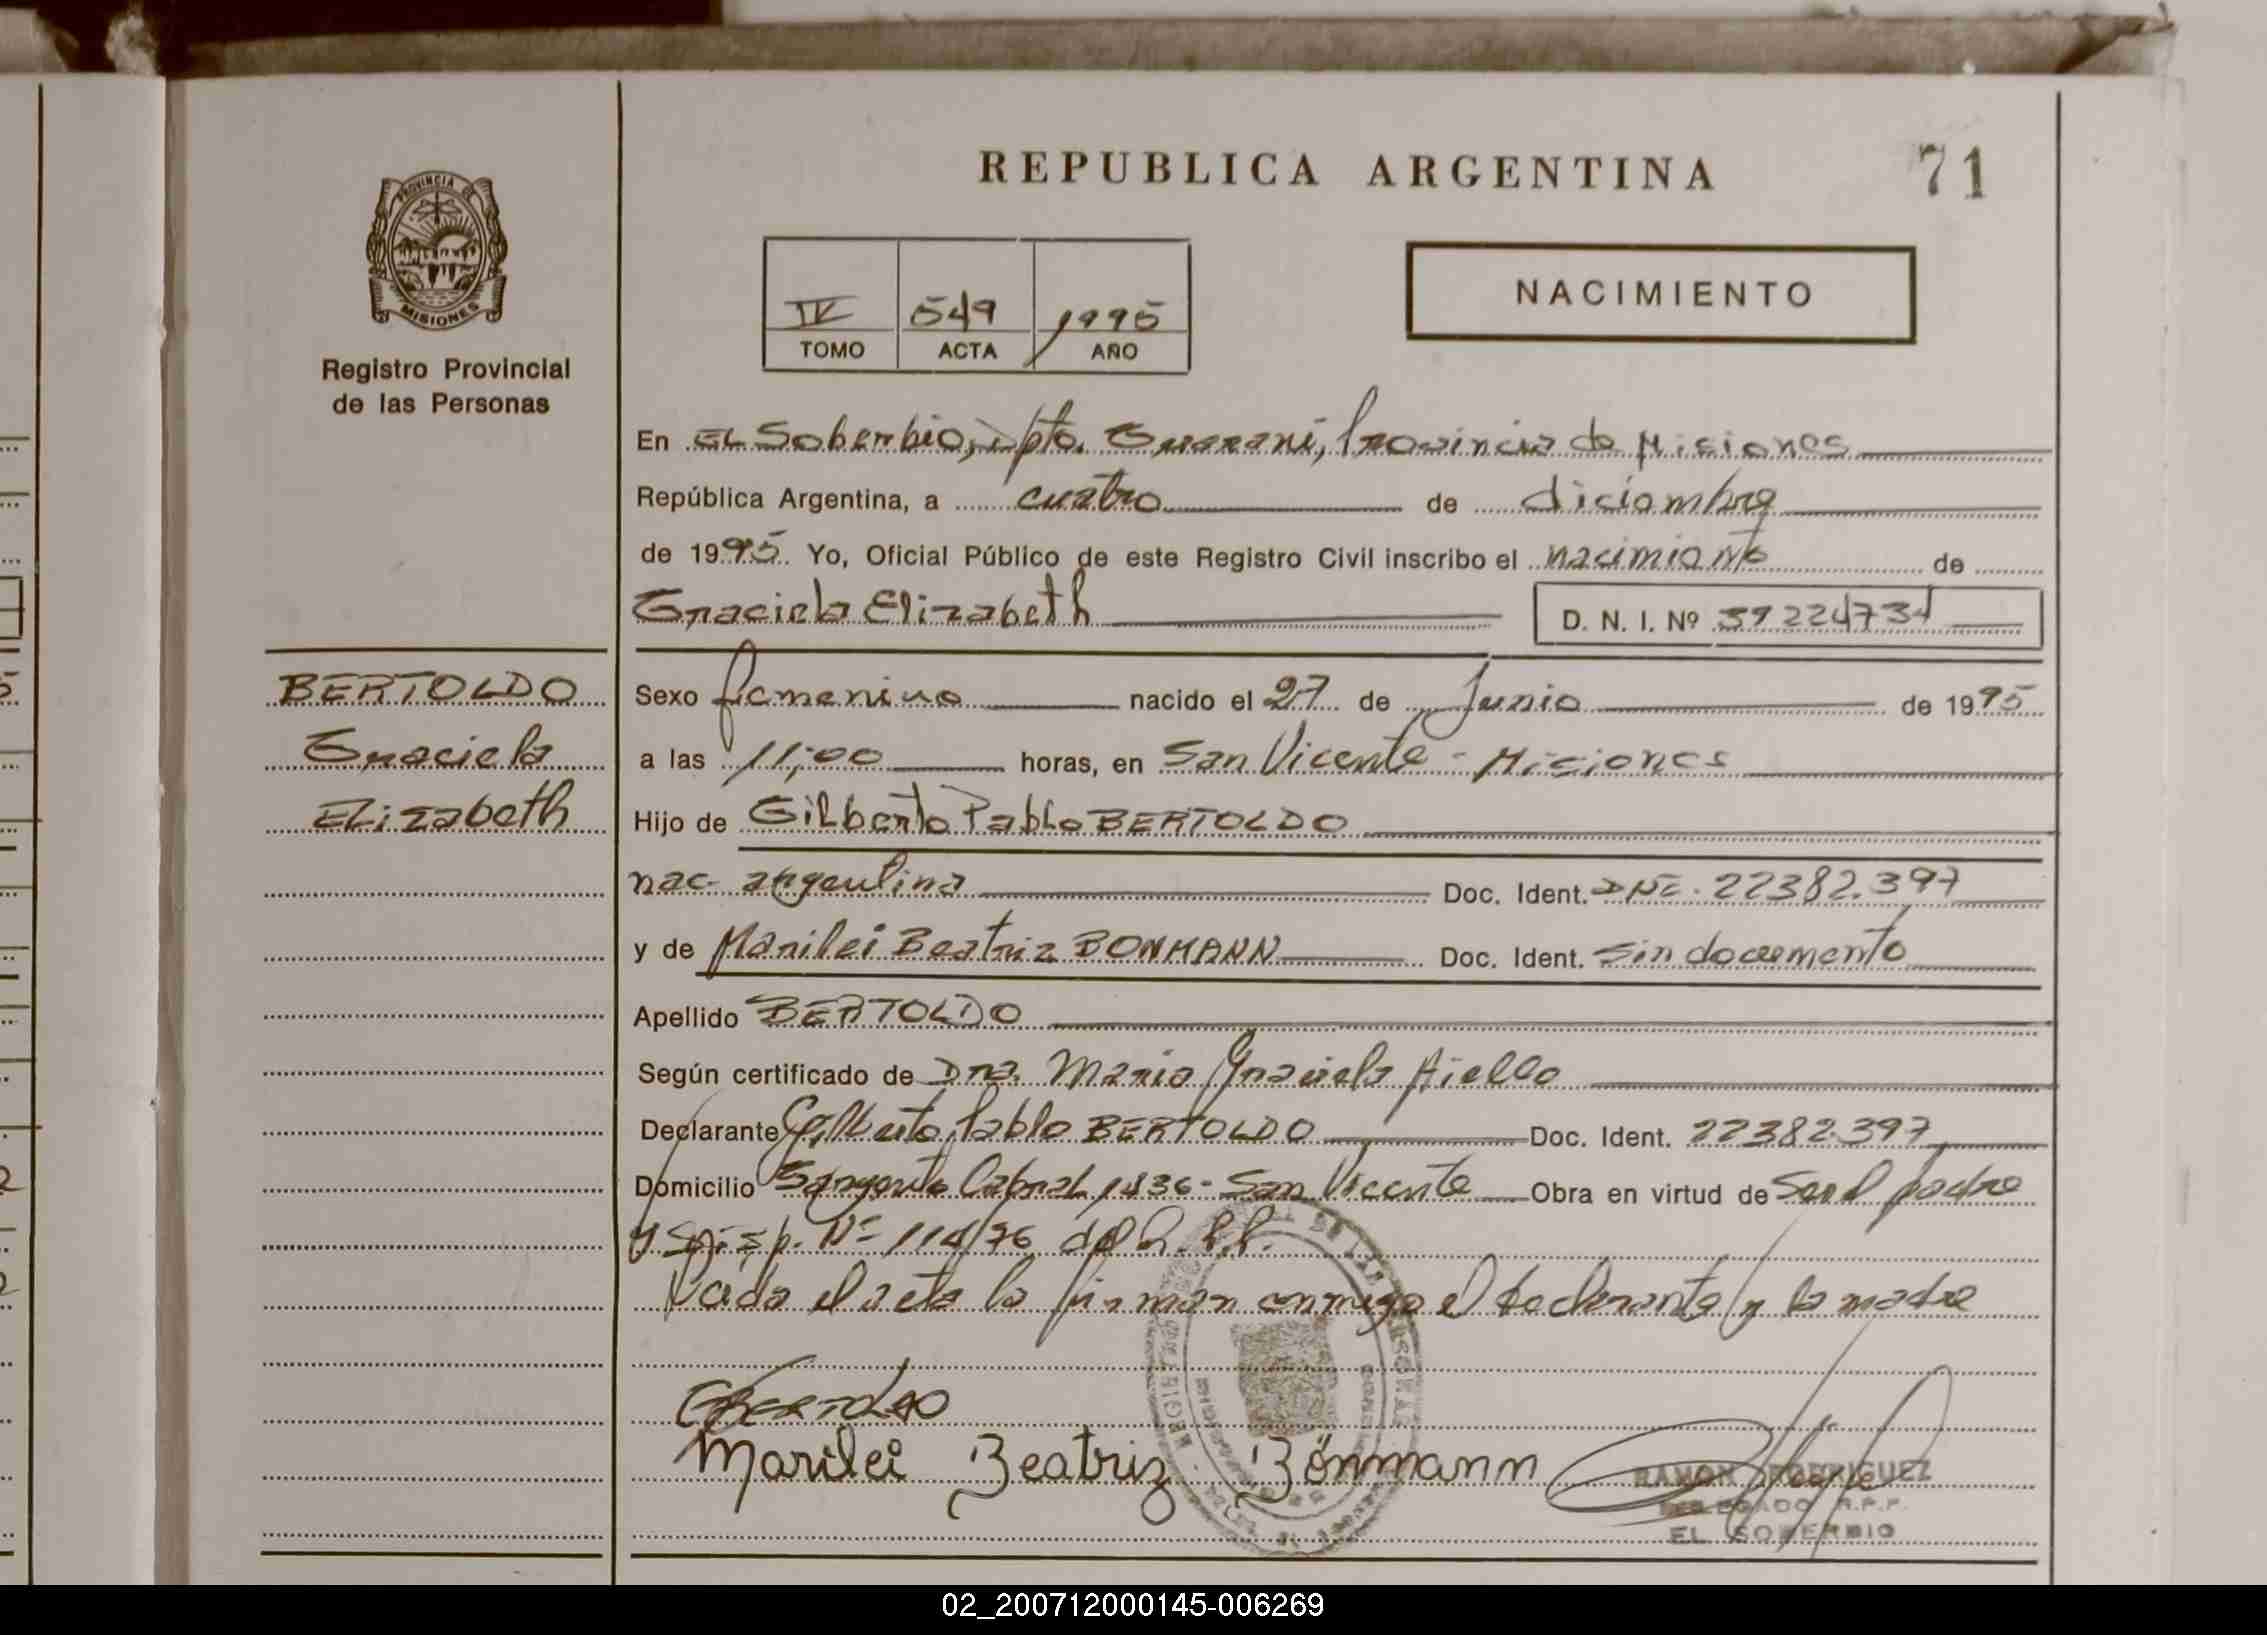 REPUBLICA ARGENTINA
71
PROVINCIA DE
MISIONES
Registro Provincial
de las Personas
IV 549 1995
TOMO ACTA AÑO
NACIMIENTO
En EL Soberbio, Dpto. Guarani, Provincia de Misiones
República Argentina, a cuatro de diciembre
de 1995 Yo, Oficial Público de este Registro Civil inscribo el nacimiento de
Graciela Elizabeth D. N. I. Nº 39224734
BERTOLDO
Graciela
Elizabeth
Sexo femenino nacido el 27 de Junio de 1995
a las 11,00 horas, en San Vicente - Misiones
Hijo de Gilberto Pablo BERTOLDO
nac. argentina Doc. Ident. DNI. 22382.397
y de Marilei Beatriz BONMANN Doc. Ident. Sin documento
Apellido BERTOLDO
Según certificado de Dra. Maria Graciela Aiello
Declarante Gilberto Pablo BERTOLDO Doc. Ident. 22382.397
Domicilio Sargento Cabral 1836 - San Vicente Obra en virtud de Ser el padre
y Disp. Nº 114/76 del R.P.P.
Leida el acta la firman conmigo el declarante y la madre
GBERTOLDO
Marilei Beatriz Bönmann
RAMON RODRIGUEZ
DELEGADO R.P.P.
EL SOBERBIO
02_200712000145-006269